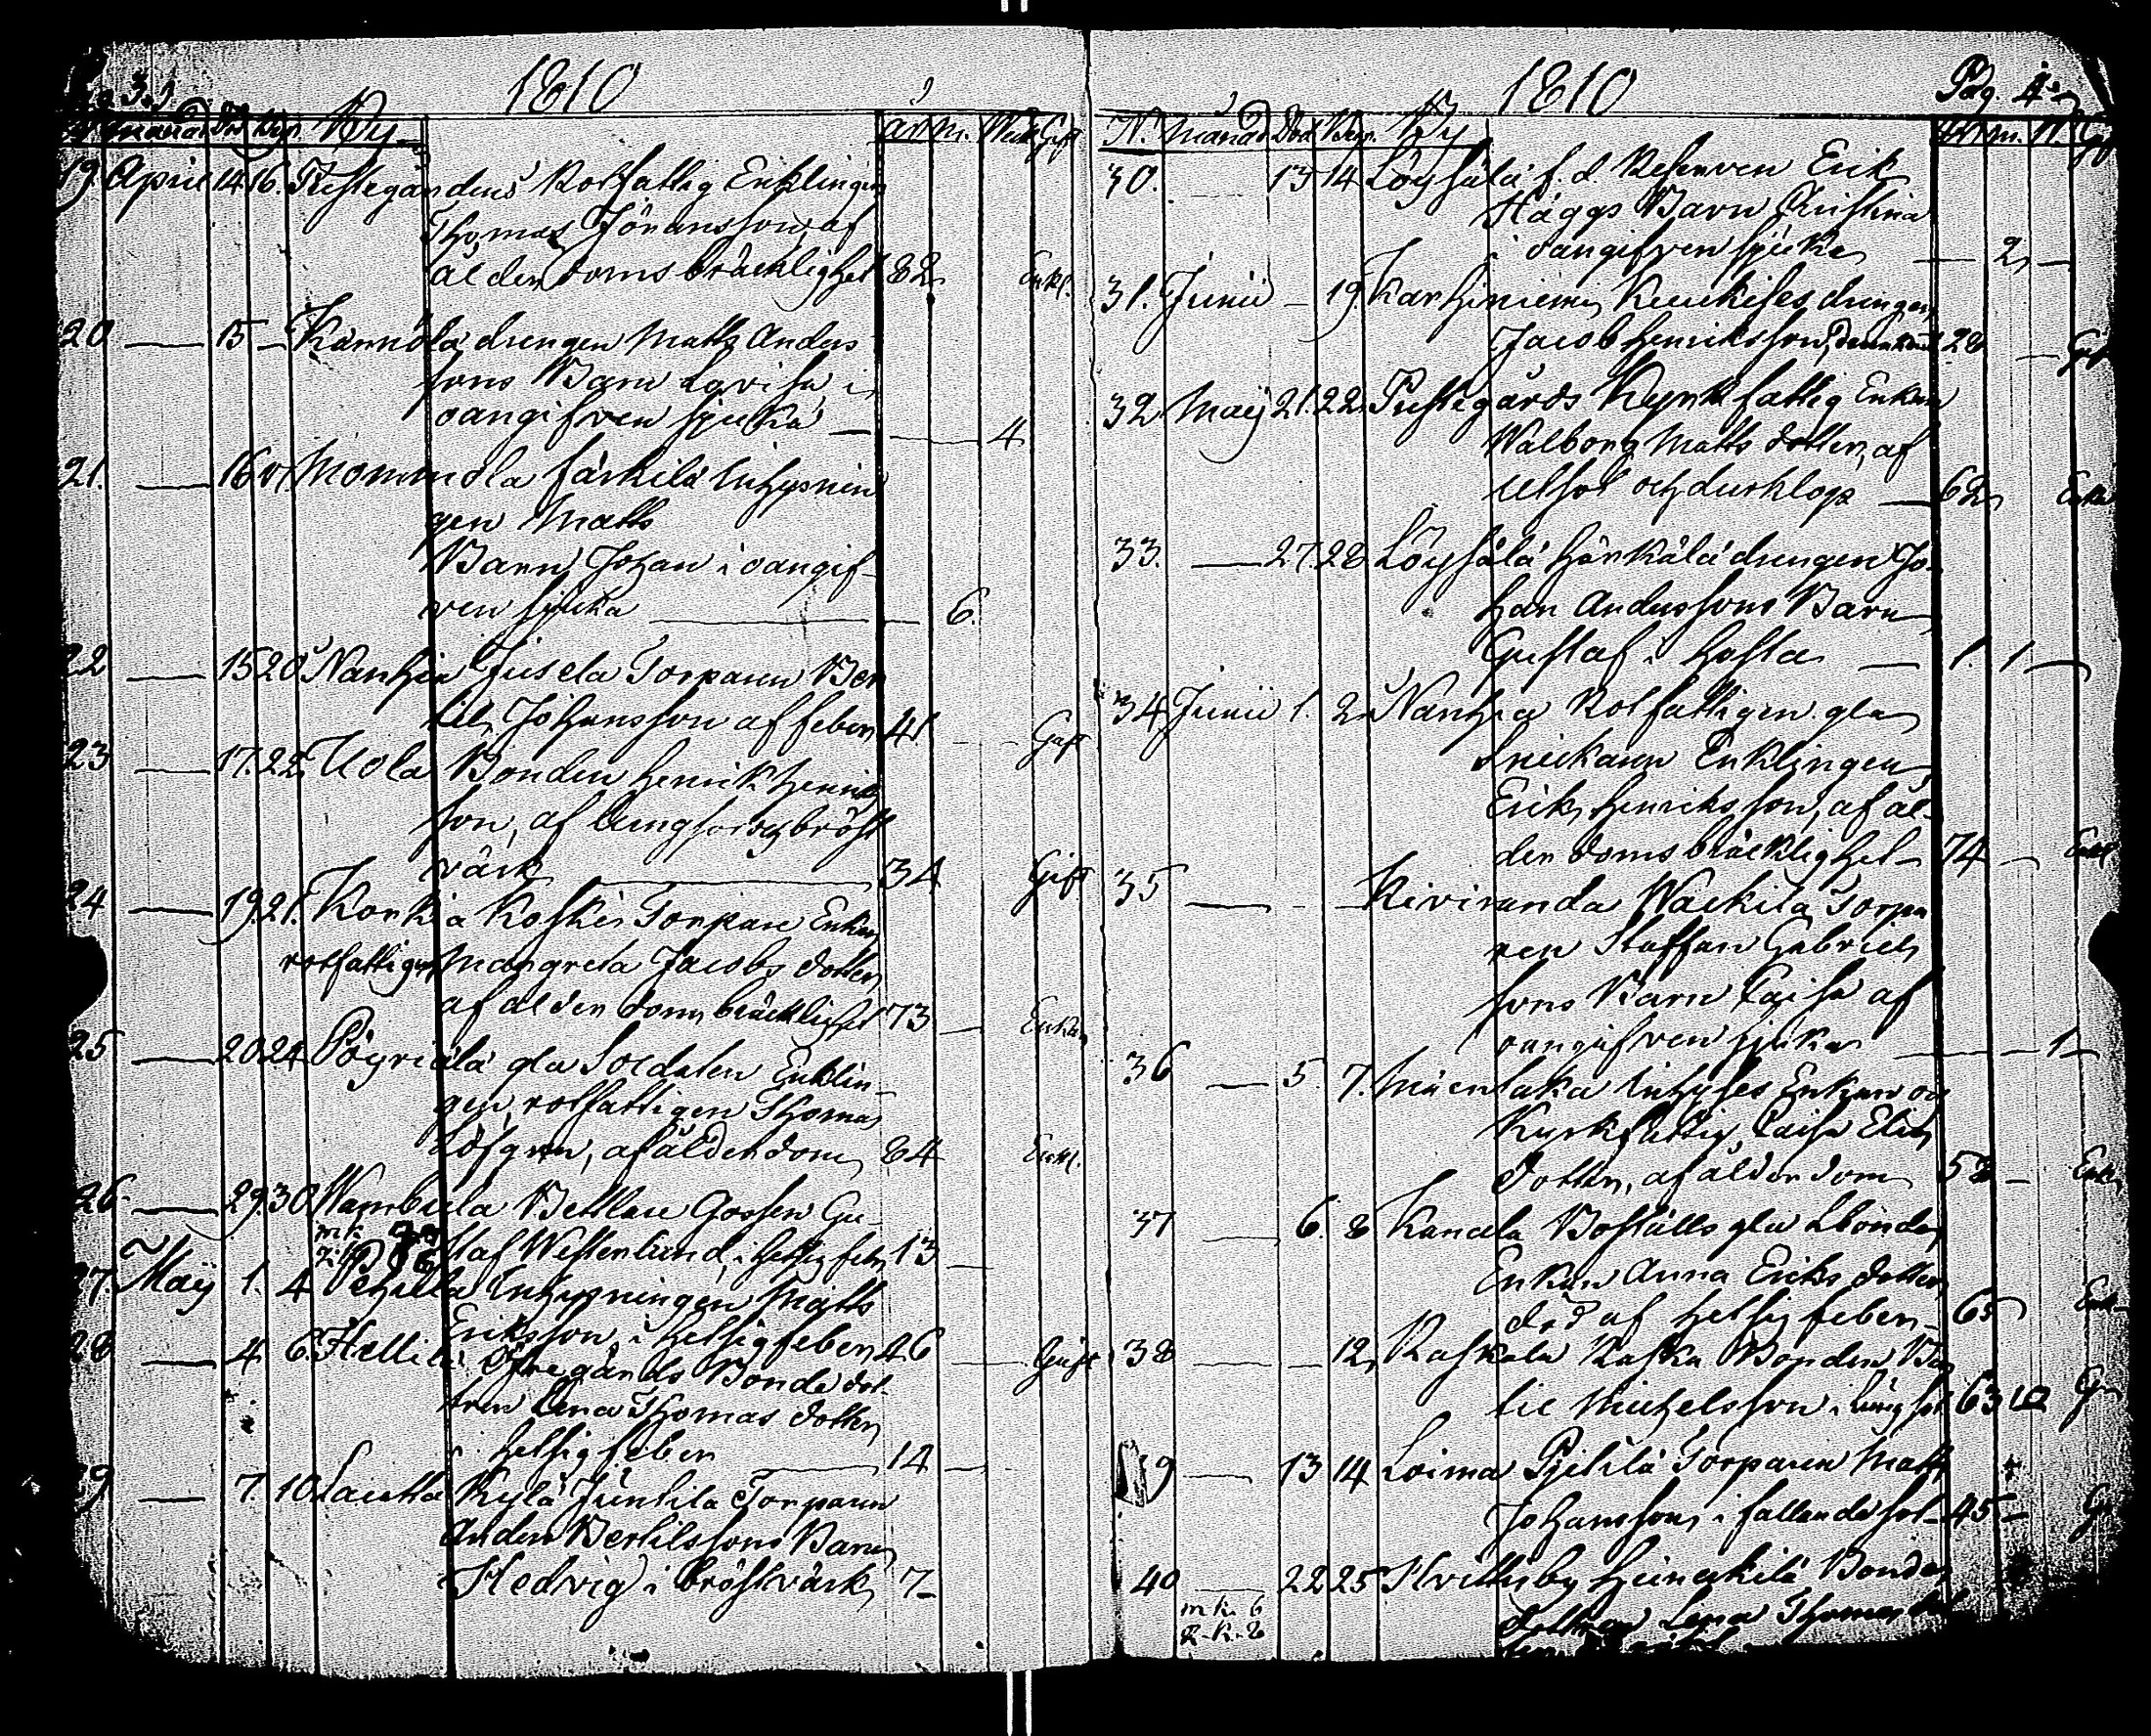 3.
1810
N. Månad Död Begr. By år m. Veck Gift
19. April 14. 16. Prestegårdens Rotfattig Enklingen
Thomas Jöransson, af
ålderdoms bräcklighet 82 Enkl.
20 — 15 — Kännölä drengen Matts Anders
sons Barn Lovisa, i
oangifven sjuka — — 4
21. — 16 Mommola Inhysnin
gen Matts
Barn Johan i oangif-
ven sjuka — — 6.
22 — 15 20 Nanhia Jusela Torparen Ber
til Johansson af feber 41 Gift
23 — 17. 22. Uola Bonden Henrik Henric
son, af lungsot och bröst
värk — 34 Gift
24 — 19. 21. Korkia Koskis Torpare Enkan
rotfattiga Margreta Jacobs dotter,
af ålderdoms bräcklighet 73 — Enkan
25 — 20. 24 Pöyriälä gla Soldaten Enklin-
gen, rotfattigen Thomas
Löfgren, af ålderdom 84 Enkl.
26. — 29. 30 Wambula Bettlare Gossen Gu-
m.k.
staf Westerlund, i hetsig feber 13 —
27. Maij 1. 4 Pehula Inhysningen Matts
Eriksson, i hetsig feber 46 — Gift
28 — 4 6. Hellilä Öfregårds Bonde dot-
tren Lena Thomas dotter
i hetsig feber — 14 —
29 — 7. 10. Lautta Kylä Juntila Torparen
Anders Bertilssons Barn
Hedvig i bröstvärk 7 —
1810
Pag. 4
N. Månad Död Begr. By år m. V. Gif
30. 13 14 Löysälä f. d. Reserven Erik
Häggs Barn Kristina
i oangifven sjuka — 2 —
31. Junii — 19. Karhiniemi Kuukises drengen
Jacob Henriksson, drunknad 28 — Gift
32 Maij 21. 22. Prestegårds Kyrkfattig Enkan
Walborg Matts dotter, af
och durklopp — 62 Enka
33. — 27. 28 Löysälä Härkälä drengen Jo-
han Anderssons Barn
Gustaf i hosta — 1. 1 —
34 Junii 1. 2 Nanhia Rotfattigen gla
Snickaren Enklingen
Erik Henriksson, af ål-
derdoms bräcklighet — 74 — Enkl
35 — — Kiviranda Wäckilä Torpa
ren Staffan Gabriels
sons Barn Caisa af
oangifven sjuka — 1 —
36 — 5 7. Muentaka Inhyses Enkan och
Kyrkfattig, Caisa Elias
dotter, af ålderdom 58 — Enk
37 — 6. 8 Kanala Boställs gla Lbonde
Enkan Anna Eriks dotter
död af hetsig feber — 65 Enk
38 — — 12 Raskala Raska Bonden Ber
til Michelsson i lungsot 63 10 G
39 — 13 14 Loima Pjetilä Torparen Matts
Johansson, i fallande sot — 45 — G
40 — 22 25 Hvittisby Heinikilä Bonde
m.k. 6
q.k. 8
dottren Lena Thomas dot